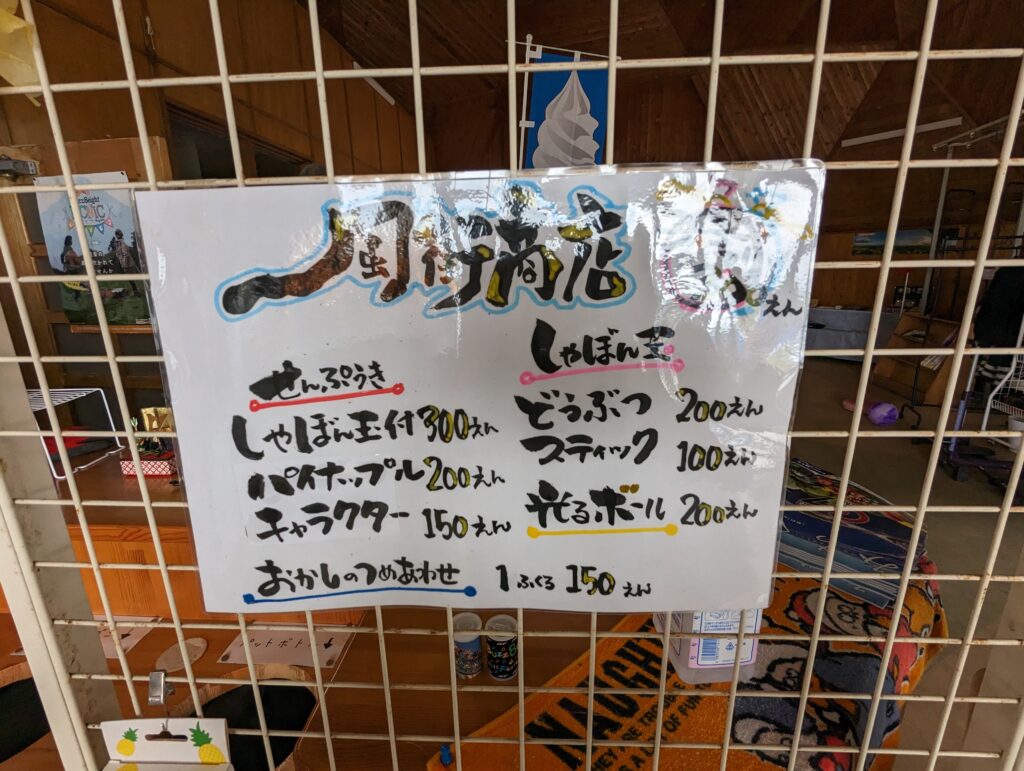 風街商店
えん
せんぷうき
しゃぼん玉付 300えん
パイナップル 200えん
キャラクター 150えん
しゃぼん玉
どうぶつ 200えん
スティック 100えん
光るボール 200えん
おかしのつめあわせ 1ふくろ 150えん
ペットボトル
NAUGH